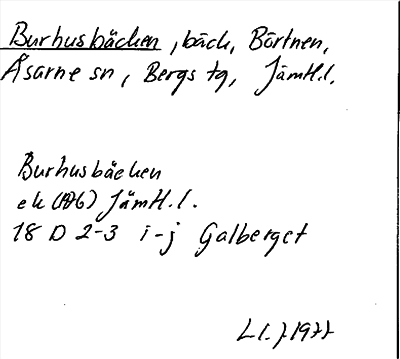 Burhusbäcken, bäck, Börtnen,
Åsarne sn, Bergs tg, Jämtl.l.
Burhusbäcken
ek (1976) Jämtl.l.
18 D 2-3 i-j Galberget
1977